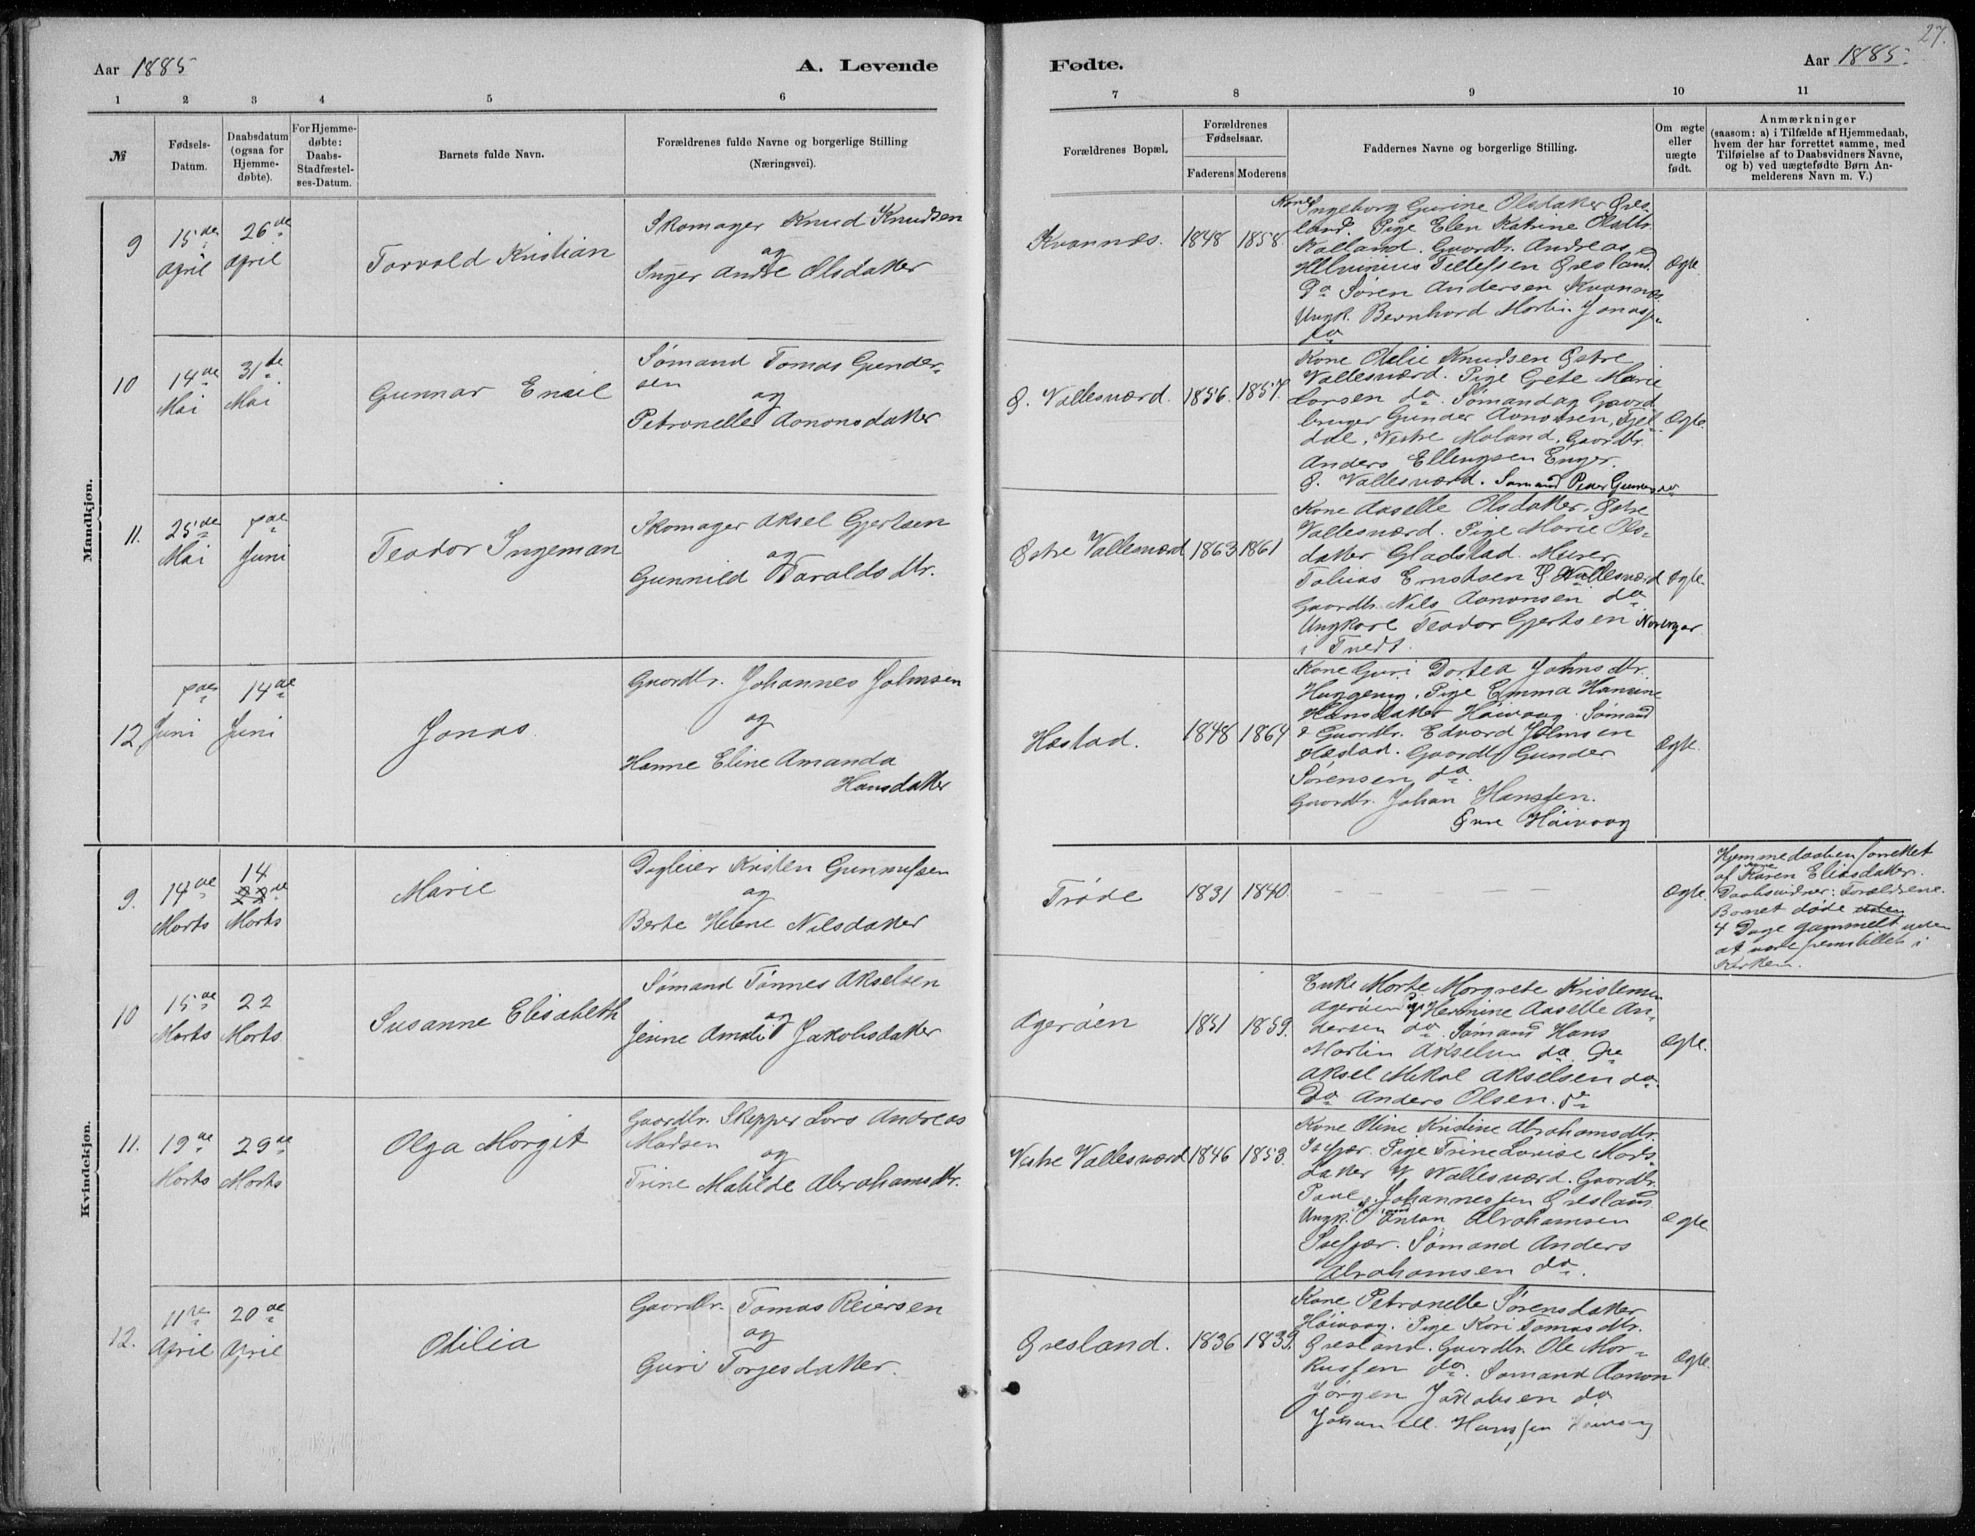 27.
Aar 1885
A. Levende
Fødte.
Aar 1885.
1 2 3 4 5 6 7 8 9 10 11
№
Fødsels-
Datum.
Daabsdatum
(ogsaa for
Hjemme-
døbte).
For Hjemme-
døbte:
Daabs-
Stadfæstel-
ses-Datum.
Barnets fulde Navn.
Forældrenes fulde Navne og borgerlige Stilling
(Næringsvei).
Forældrenes Bopæl.
Forældrenes
Fødselsaar.
Faderens Moderens
Faddernes Navne og borgerlige Stilling.
Om ægte
eller
uægte
født.
Anmærkninger
(saasom: a) i Tilfælde af Hjemmedaab,
hvem der har forrettet samme, med
Tilføielse af to Daabsvidners Navne,
og b) ved uægtefødte Børn An-
melderens Navn m. V.)
Mandkjøn.
9
15de
April
26de
April
Torvald Kristian
Skomager Knud Knudsen
og
Inger Andre Olsdatter
Kvannæs. 1848 1858.
Kone
Ingeborg Gurine Olsdatter Øres-
land. Pige Elen Katrine Olsdtr.
Kalland. Gaardbr. Andreas
Tellefsen Øresland.
Do Søren Andersen Kvannæs.
Ungk. Bernhard Martin Jonass.
do
Ægte
10
14de
Mai
31te
Mai
Gunnar Emil
Sømand Tomas Gunder-
sen
og
Petronelle Aanonsdatter
Ø. Vallesværd. 1856. 1857.
Kone Otelie Knudsen Østre
Vallesværd. Pige Grete Marie
Larsen do. Sømand og Gaard-
bruger Gunder Aanonsen, Fjel-
dal, Vestre Moland. Gaardbr.
Anders Ellingsen Enger.
Ø. Vallesværd. Sømand Peder do
Ægte.
11.
25de
Mai
7de
Juni
Teodor Ingeman
Skomager Aksel Gjertsen
og
Gunnild Taraldsdtr.
Østre Vallesværd 1863 1861
Kone Aaselle Olsdatter Østre
Vallesværd. Pige Marie Ols-
datter Gladstad. Murer
Tobias Ernstsen Ø Vallesværd
Gaardbr. Nils Aanonsen do
Ungkarl Teodor Gjertsen
i Tvedt.
Ægte.
12
7de
Juni
14de
Juni
Jonas.
Gaardbr. Johannes Johnsen
og
Hanne Eline Amanda
Hansdatter
Hæstad. 1848 1864
Kone Guri Dortea Johnsdtr.
Pige Emma Hansine
Hansdatter Høivaag. Sømand
& Gaardbr. Edvard Johnsen
Hæstad. Gaardbr. Gunder
Sørensen do.
Gaardbr. Johan Hanssen.
Øvre Høivaag
Ægte.
Kvindekjøn.
9.
14de
Marts
14
22de
Marts
Marie
Dagleier Kristen Gunnufsen
og
Berte Helene Nilsdatter
Trøde 1831 1840.
— — — —
Ægte.
Hjemmedaaben forrettet
af Kone Karen Eliasdatter.
Daabsvidner: Forældrene.
Barnet døde uden
4 Dage gammelt uden
at være fremstillet i
Kirken.
10
15de
Marts
22
Marts
Susanne Elisabeth
Sømand Tønnes Akselsen
og
Jenne Amalie Jakobsdatter
Agerøen 1851 1859.
Enke Marte Margrete Kristensen
Agerøen Pige Hermine Aaselle An-
dersen do. Sømand Hans
Martin Akselsen do. Do
Aksel Mikal Akselsen do.
Do Anders Olsen. do
Ægte.
11.
19de
Marts
29de
Marts
Olga Margit
Gaardbr. Skipper Lars Andreas
Madsen
og
Trine Matilde Abrahamsdtr.
Vestre Vallesværd 1846 1853.
Kone Oline Kristine Abrahamsdtr.
Isefjær. Pige Trine Lovise Mads-
datter V Vallesværd. Gaardbr.
Paul Johannessen Øresland
Ungk. Anton Abrahamsen
Isefjær. Sømand Anders
Abrahamsen do.
Ægte
12.
11te
April
20de
April
Otilia
Gaardbr. Tomas Reiersen
og
Guri Torjesdatter.
Øresland. 1836 1839.
Kone Petronelle Sørensdatter
Høivaag. Pige Kari Tomasdtr.
Øresland. Gaardbr. Ole Mar-
kussen do. Sømand Aanon
Jørgen Jakobsen do
Johan M. Hanssen Høivaag
Ægte.